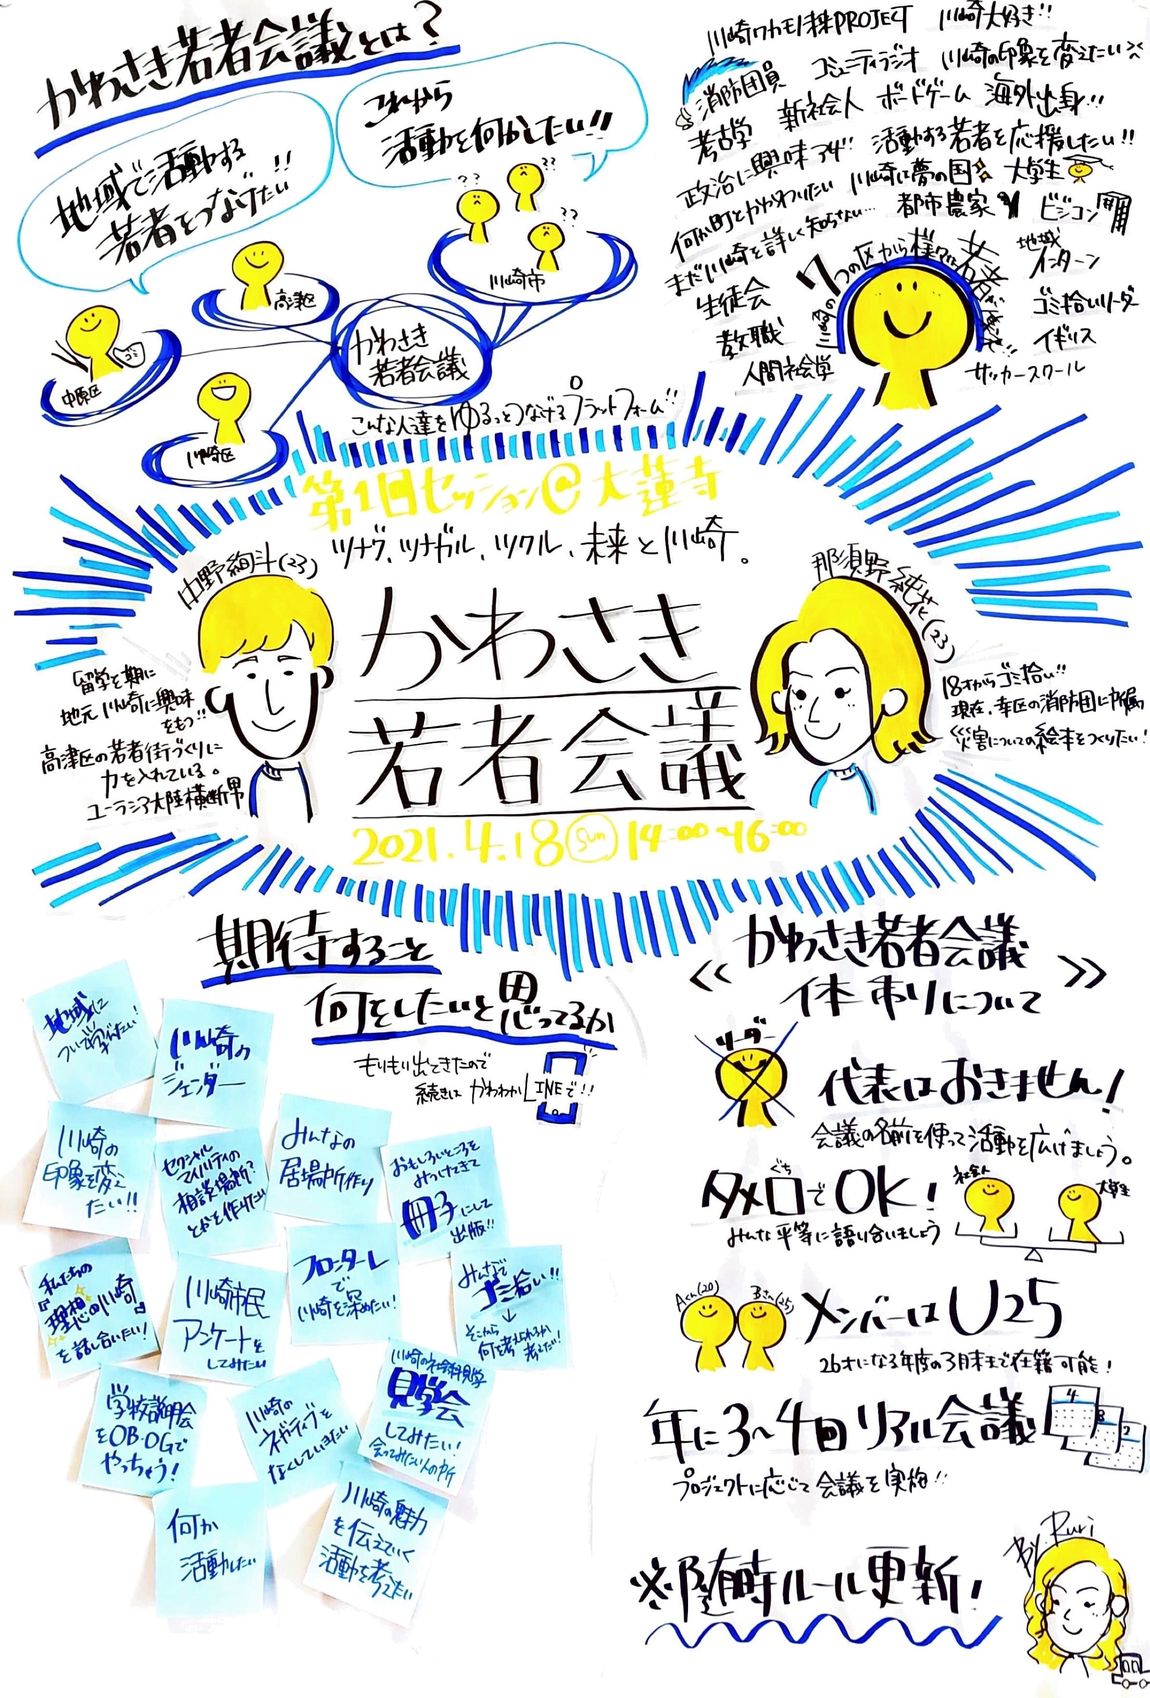 かわさき若者会議とは？
地域で活動する
若者をつなげたい!!
これから
活動を何かしたい!!
??
??
??
川崎市
高津区
中原区
ゴミ
川崎区
かわさき
若者会議
こんな人達をゆるっとつなげるプラットフォーム!!
川崎ワカモノ未来PROJECT 川崎大好き!!
消防団員 コミュニティラジオ 川崎の印象を変えたい
考古学 新社会人 ボードゲーム 海外出身!!
政治に興味アリ! 活動する若者を応援したい!!
何か町とかかわりたい 川崎は夢の国 大学生
まだ川崎を詳しく知らない… 都市農家 ビジコン
生徒会
教職
人間社会学
川崎の7つの区から様々な若者が
地域
インターン
ゴミ拾いリーダー
イギリス
サッカースクール
第1回セッション@大蓮寺
ツナグ、ツナガル、ツクル、未来と川崎。
中野絢斗(23)
那須野純花(23)
かわさき
若者会議
2021.4.18 Sun 14:00~16:00
留学を期に
地元川崎に興味
をもつ!!
高津区の若者街づくりに
力を入れている。
ユーラシア大陸横断男
18才からゴミ拾い!!
現在、幸区の消防団に所属
災害についての絵本をつくりたい!
期待すること
何をしたいと思ってるか
もりもり出てきたので
続きは かわわかLINEで!!
地域に
ついて学びたい!
川崎の
ジェンダー
川崎の
印象を変え
たい!!
セクシャル
マイノリティの
相談場所?
とかを作りたい
みんなの
居場所作り
おもしろいところを
みつけてきて
冊子にして
出版!!
私たちの
『理想の川崎』
を話し合いたい!
川崎市民
アンケートを
してみたい
フロンターレ
で
川崎を深めたい!
みんなで
ゴミ拾い!!
↓
そこから
何を考えられるか
考えたい!
学校説明会
をOB・OGで
やっちゃう!
川崎の
ネガティブを
なくしていきたい
川崎の社会科見学
見学会
してみたい!
会ってみたい人の所
何か
活動したい
川崎の魅力
を伝えていく
活動を考えたい
かわさき若者会議
≪ 体制について ≫
リーダー
代表はおきません!
会議の名前を使って活動を広げましょう。
タメ口でOK!
ぐち
みんな平等に語り合いましょう
社会人
大学生
Aくん(20)
Bさん(25)
メンバーはU25
26才になる年度の3月末まで在籍可能!
年に3〜4回リアル会議
4
3
2
プロジェクトに応じて会議を実施!!
※随時ルール更新!
By. Ruri